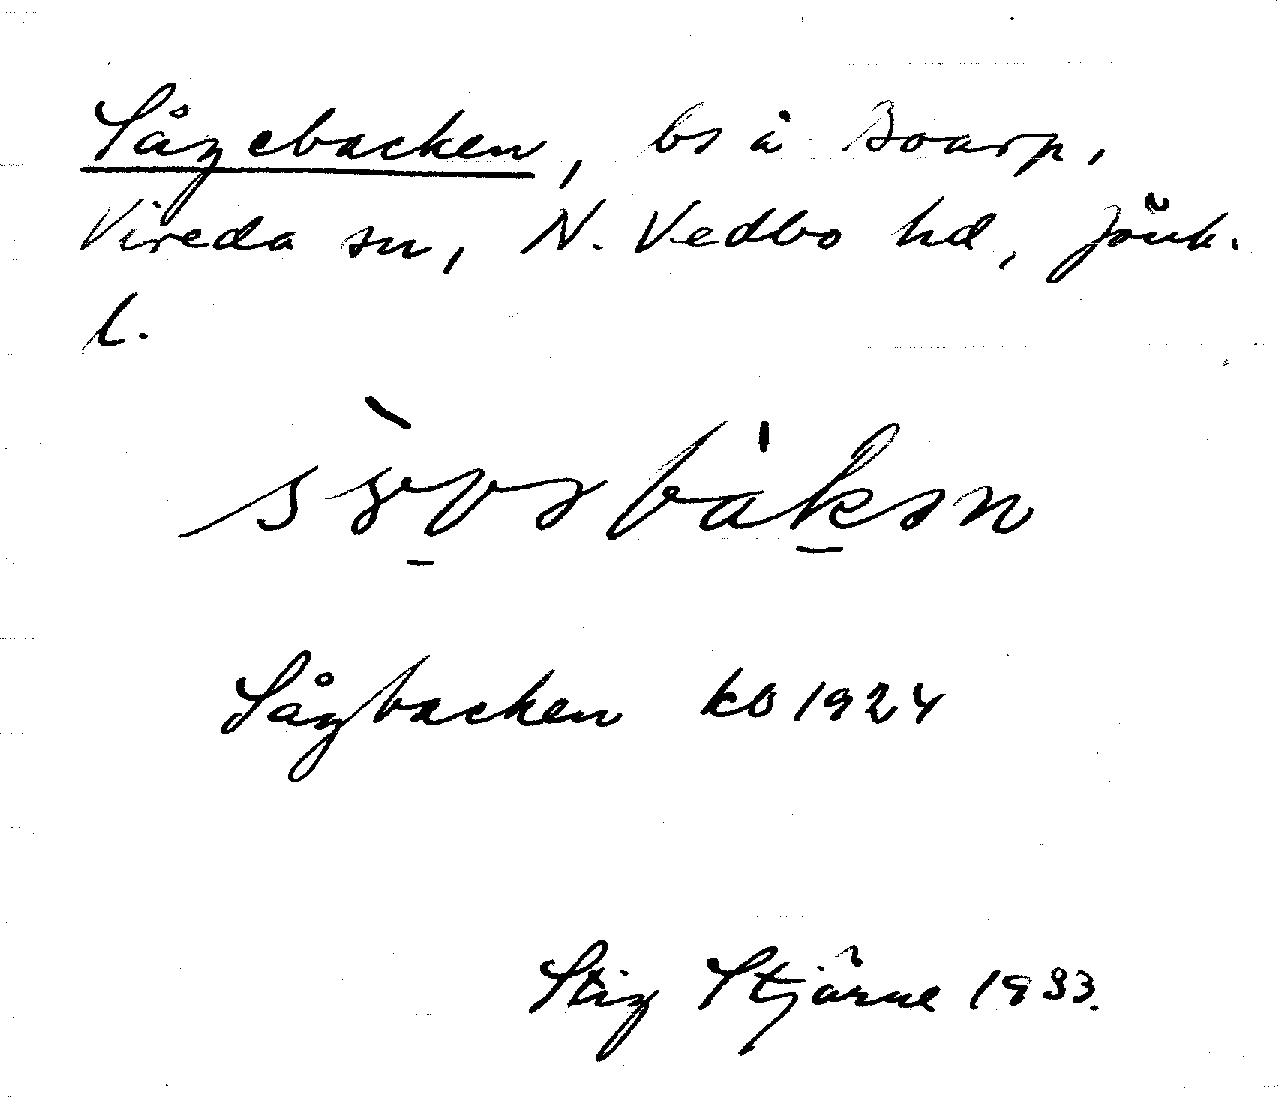 Sågebacken, bs å Boarp,
Vireda sn, N. Vedbo hd, Jönk.
l.
Sågbacken KB 1924
Stig Stjärne 1933.